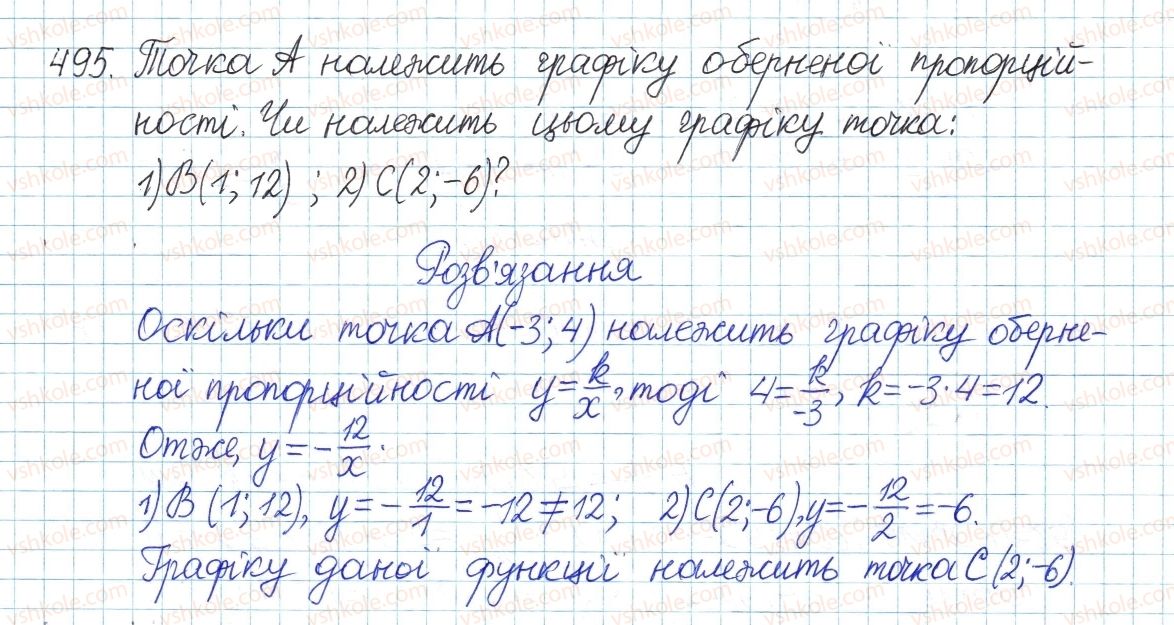 495. Точка А належить графіку оберненої пропорцій-
ності. Чи належить цьому графіку точка:
1) В(1; 12) ; 2) С(2; -6)?
Розв'язання
Оскільки точка А(-3; 4) належить графіку оберне-
ної пропорційності y = k/x, тоді 4 = k/-3, k = -3·4 = 12.
Отже, y = - 12/x.
1) В (1; 12), y = - 12/1 = -12 ≠ 12; 2) С(2; -6), y = - 12/2 = -6.
Графіку даної функції належить точка С (2; -6).